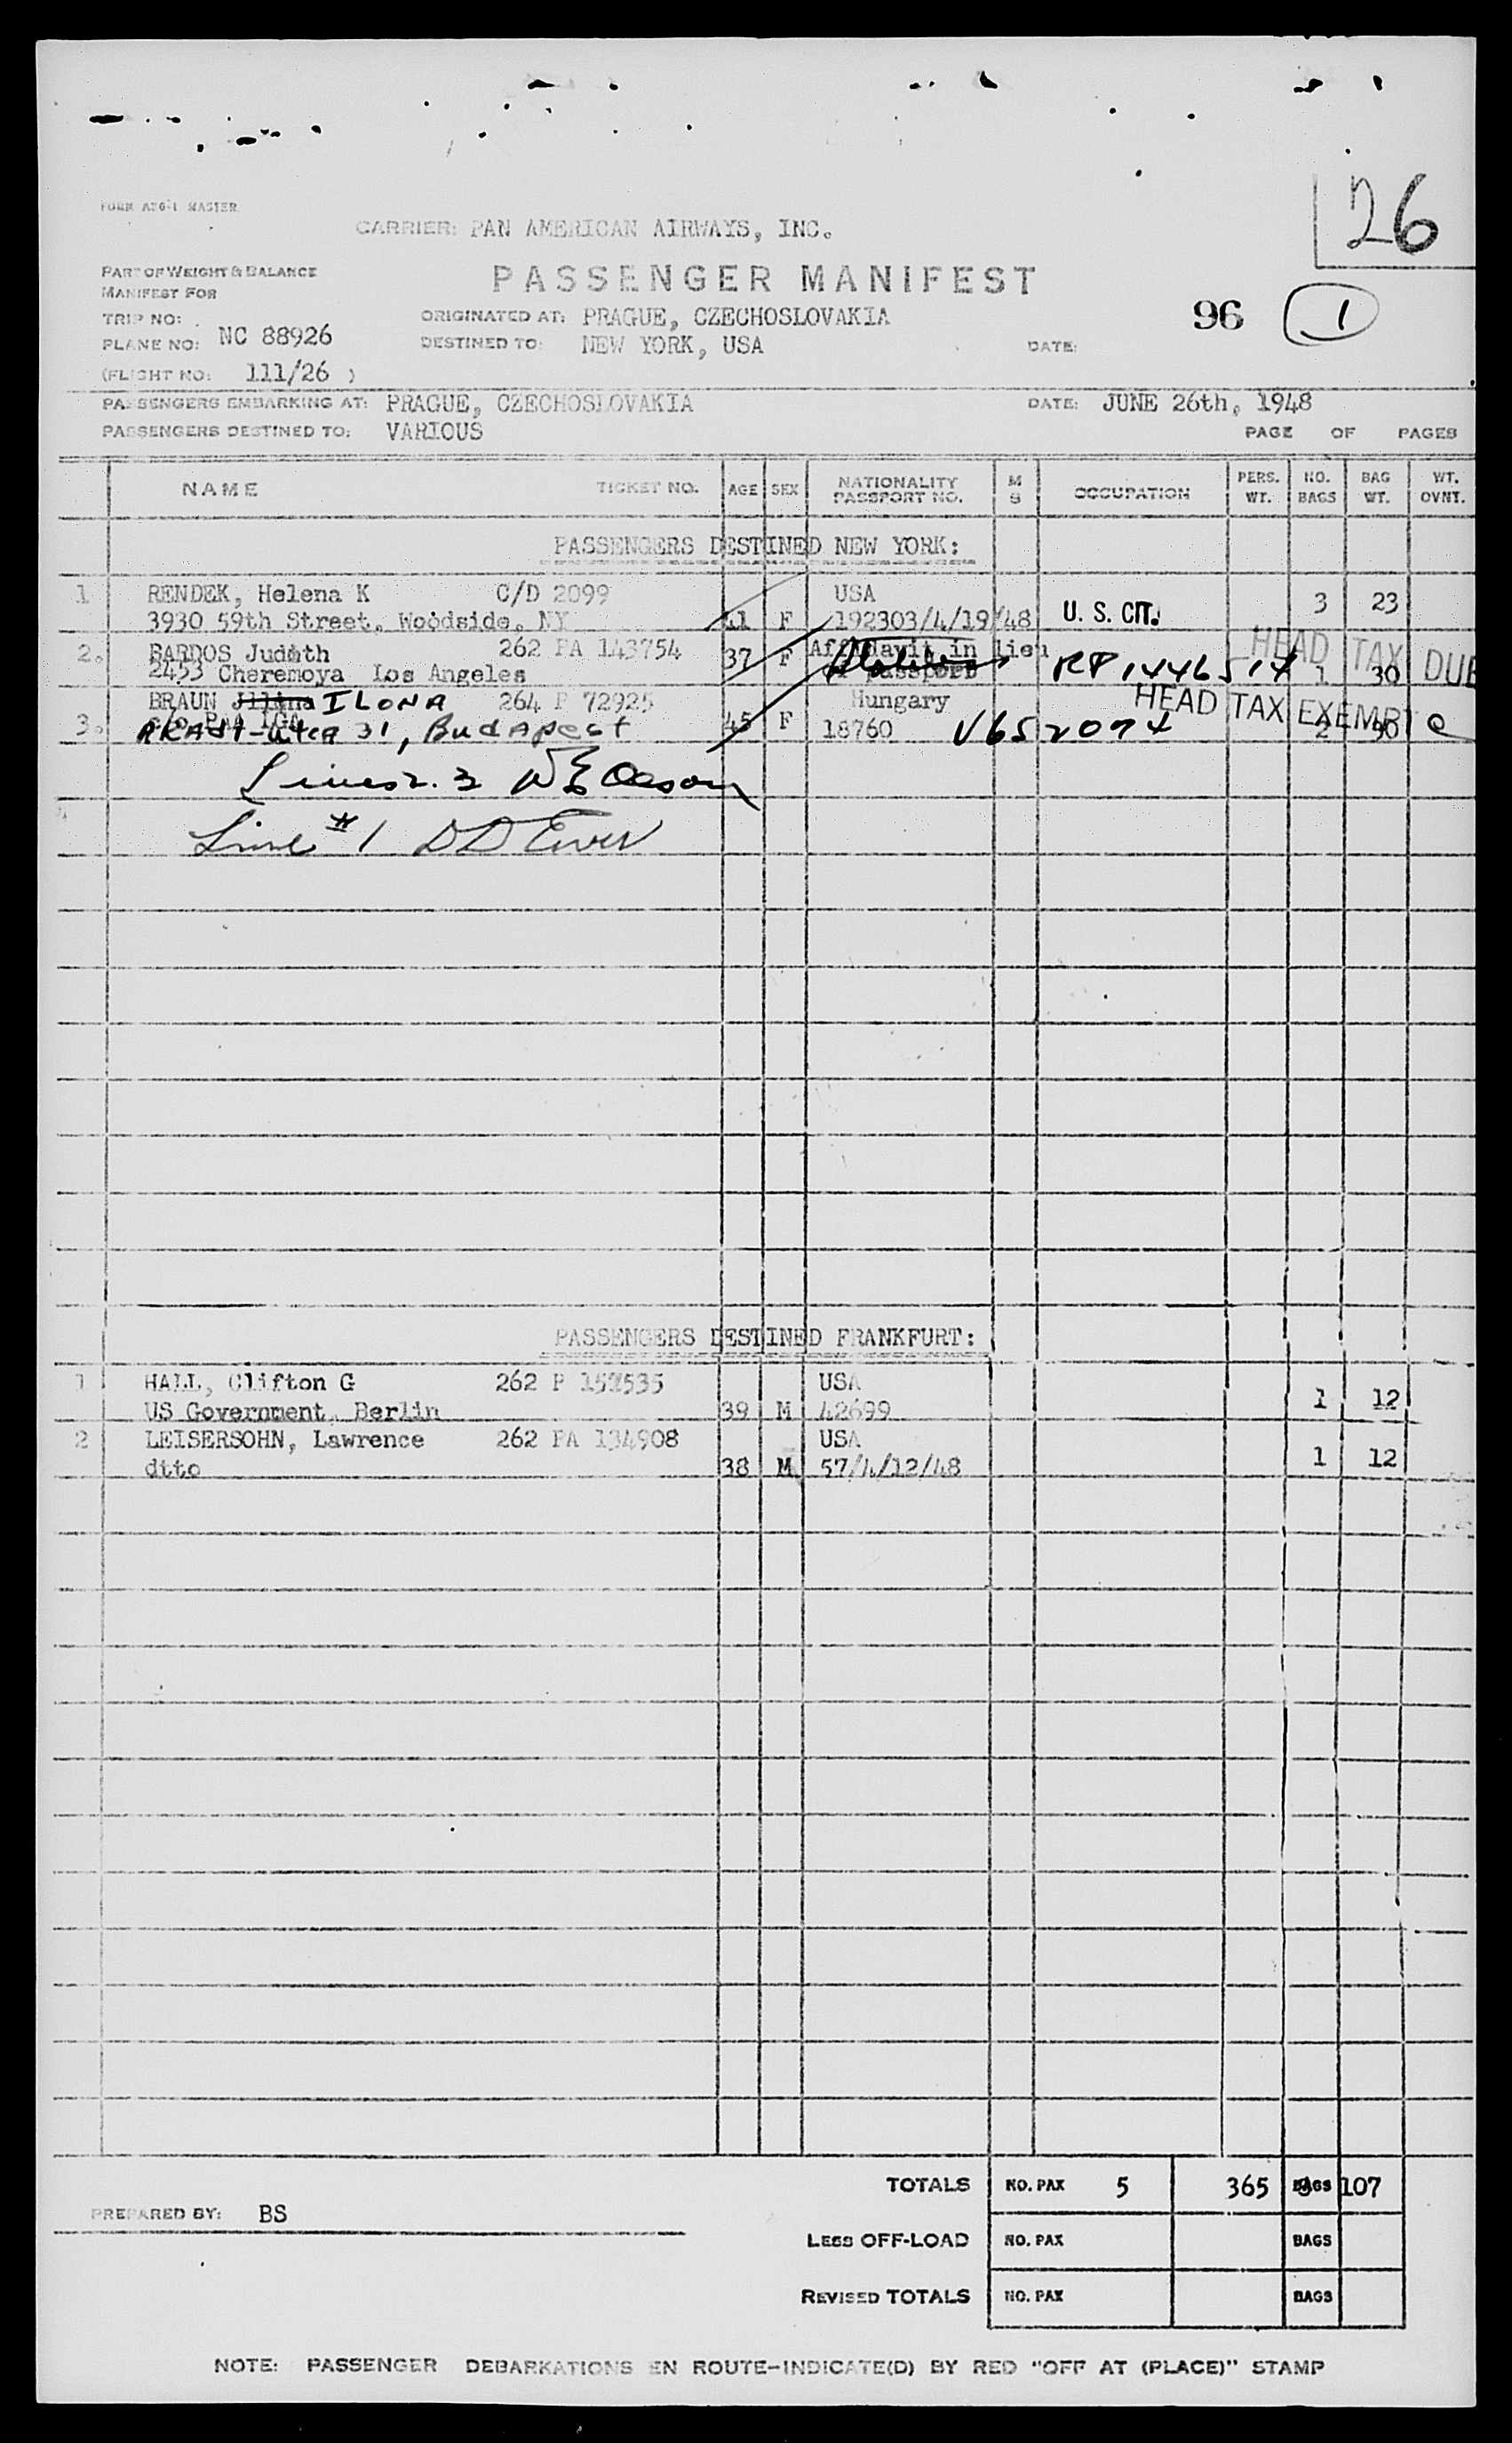 26
CARRIER: PAN AMERICAN AIRWAYS, INC.
PART OF WEIGHT & BALANCE
MANIFEST FOR
PASSENGER MANIFEST
96 1
TRIP NO:
ORIGINATED AT: PRAGUE, CZECHOSLOVAKIA
PLANE NO: NC 88926
DESTINED TO: NEW YORK, USA
DATE:
(FLIGHT NO: 111/26 )
PASSENGERS EMBARKING AT: PRAGUE, CZECHOSLOVAKIA
DATE: JUNE 26th, 1948
PASSENGERS DESTINED TO: VARIOUS
PAGE OF PAGES
NAME TICKET NO. AGE SEX NATIONALITY PASSPORT NO. M S OCCUPATION PERS. WT. NO. BAGS BAG WT. WT. OVNT.
PASSENGERS DESTINED NEW YORK:
1 RENDEK, Helena K C/D 2099 USA
3930 59th Street, Woodside, NY 41 F 192303/4/19/48 U. S. CIT. 3 23
2. BARDOS Judith 262 PA 143754 37 F Affidavit in lieu of passport HEAD TAX DUE
2453 Cheremoya Los Angeles RP 1446514 1 30
BRAUN ILONA 264 P 72925 Hungary HEAD TAX EXEMPT
3. c/o PAA LGA 45 F 18760 V652074 2 30
31, Budapest
Lines 2. 3 W E Olson
Line #1 DD
PASSENGERS DESTINED FRANKFURT:
1 HALL, Clifton G 262 P 157535 USA
US Government, Berlin 39 M 42699 1 12
2 LEISERSOHN, Lawrence 262 PA 134908 USA
dito 38 M 57/4/12/48 1 12
TOTALS NO. PAX 5 365 BAGS 107
PREPARED BY: BS
LESS OFF-LOAD NO. PAX BAGS
REVISED TOTALS NO. PAX BAGS
NOTE: PASSENGER DEBARKATIONS EN ROUTE-INDICATE(D) BY RED "OFF AT (PLACE)" STAMP